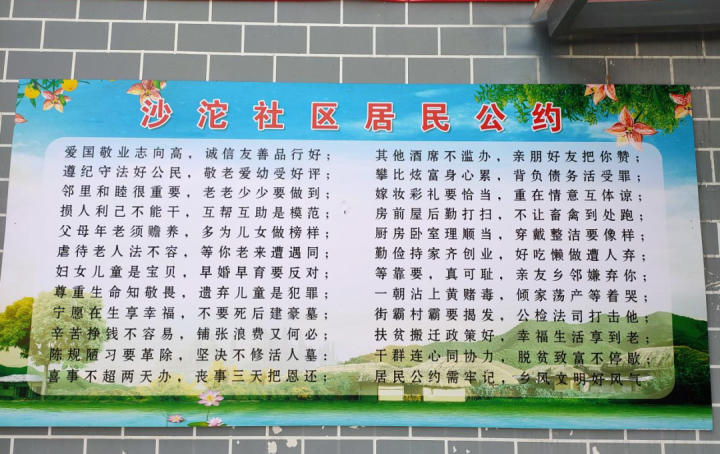 沙沱社区居民公约
爱国敬业志向高，诚信友善品行好；
遵纪守法好公民，敬老爱幼受好评；
邻里和睦很重要，老老少少要做到；
损人利己不能干，互帮互助是模范；
父母年老须赡养，多为儿女做榜样；
虐待老人法不容，等你老来遭遇同；
妇女儿童是宝贝，早婚早育要反对；
尊重生命知敬畏，遗弃儿童是犯罪；
宁愿在生享幸福，不要死后建豪墓；
辛苦挣钱不容易，铺张浪费又何必；
陈规陋习要革除，坚决不修活人墓；
喜事不超两天办，丧事三天把恩还；
其他酒席不滥办，亲朋好友把你赞；
攀比炫富身心累，背负债务活受罪；
嫁妆彩礼要恰当，重在情意互体谅；
房前屋后勤打扫，不让畜禽到处跑；
厨房卧室理顺当，穿戴整洁要像样；
勤俭持家齐创业，好吃懒做遭人弃；
等靠要，真可耻，亲友乡邻嫌弃你；
一朝沾上黄赌毒，倾家荡产等着哭；
街霸村霸要揭发，公检法司打击他；
扶贫搬迁政策好，幸福生活享到老；
干群连心同协力，脱贫致富不停歇；
居民公约需牢记，乡风文明好风气